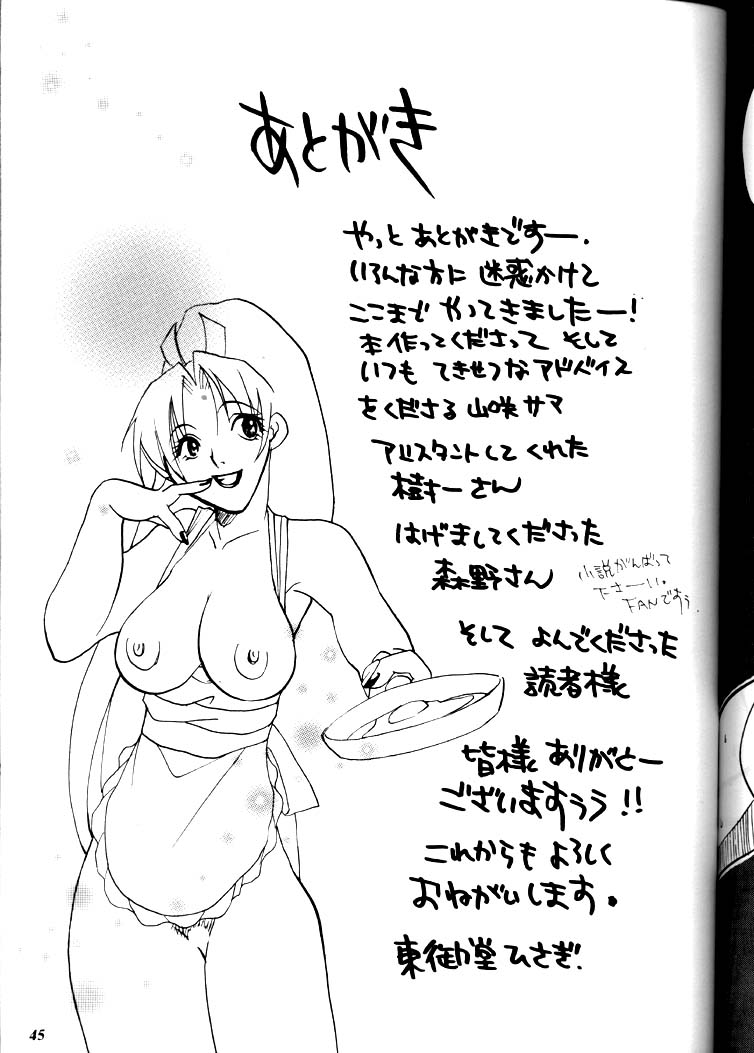 あとがき
やっと あとがきですー.
いろんな方に 迷惑かけて
ここまで やってきましたー!
本作ってくださって そして
いつも てきせつな アドバイス
をくださる 山咲サマ
アシスタントして くれた
樹さん
はげましてくださった
森野さん
小説がんばって
ださーい。
FANですぅ.
そして よんでくださった
読者様
皆様 ありがとー
ございますぅぅ!!
これからも よろしく
おねがいします。
東御堂 ひさぎ.
45